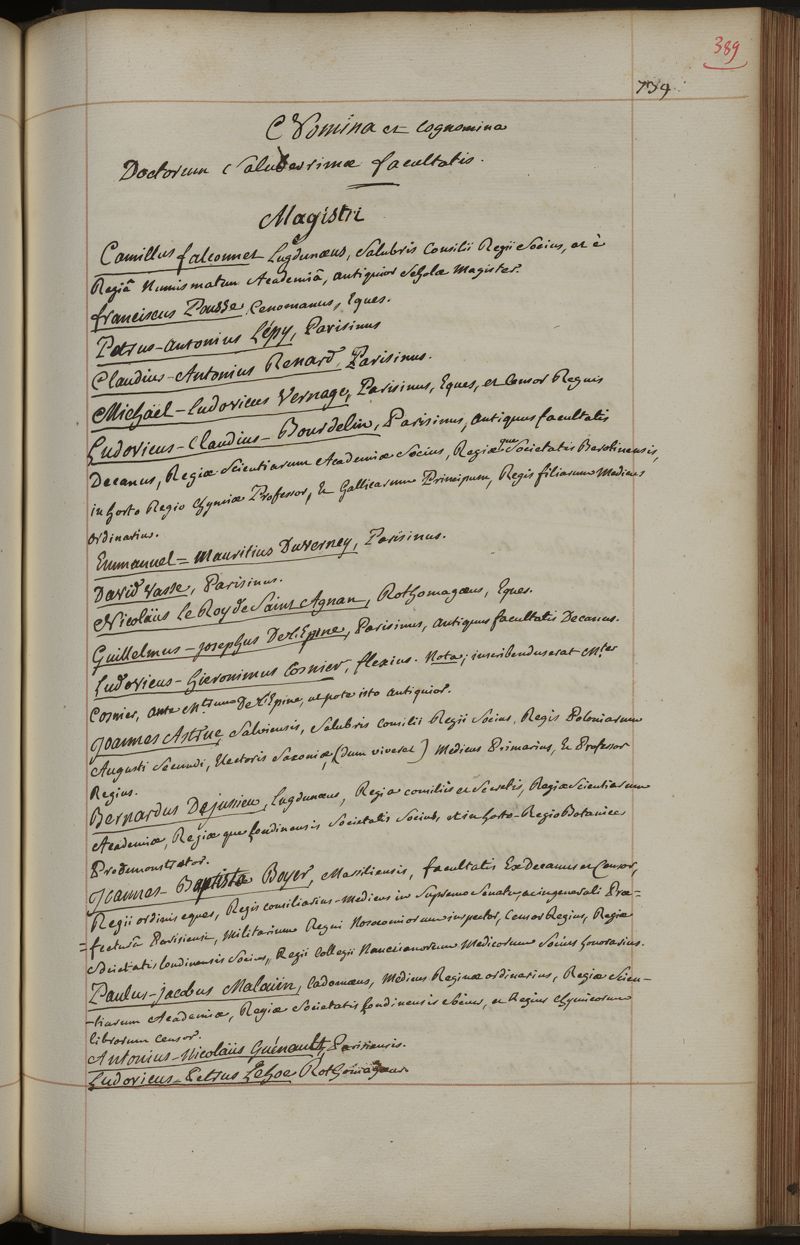 389
739.
Nomina et cognomina
Doctorum Saluberrimæ facultatis.
Magistri
Camillus falconnet Lugdunæus, Salubris Consilii Regii Socius, et è
Regiâ Numismatum Academiâ, antiquior Scholæ Magister.
franciscus Pousse, Cenomanus, Eques.
Petrus-antonius Lépy, Parisinus
Claudius-Antonius Renard, Parisinus.
Michäel-Ludovicus Vernage, Parisinus, Eques, et Censor Regius
Ludovicus-Claudius-Bourdelin, Parisinus, antiquus facultatis
Decanus, Regiæ Scientiarum Academiæ Socius, Regiæque Societatis Berolinensis,
in horto Regio Chymiæ Professor, & Gallicarum Principum, Regis filiarum Medicus
ordinarius.
Emmanuel=Mauritius Duverney, Parisinus.
David Vasse, Parisinus.
Nicolaüs Le Roy de Saint Agnan, Rothomagæus, Eques.
Guillelmus-josephus De L'Epine, Parisinus, antiquus facultatis Decanus.
Ludovicus-hieronimus Cosnier, flexius. Nota; inscribendus erat Mter
Cosnier, ante Mtrum De L'Epine, utpote isto antiquior.
Joannes Astruc, Salviensis, Salubris Consilii Regii Socius, Regis Poloniarum
Augusti Secundi, Electoris Saxoniæ, (dum viveret) Medicus Primarius, & Professor
Regius.
Bernardus Dejussieu, Lugdunæus, Regi a consiliis et Secretis, Regiæ Scientiarum
Academiæ, Regiæque Londinensis Societatis Socius, et in horto-Regio Botanices
Prodemonstrator.
Joannes-Baptista Boyer, Massiliensis, facultatis Ex Decanus et Censor,
Regii ordinis eques, Regis consiliarius-Medicus in Supremo Senatu, ac in generali Præ=
=fecturâ Parisiensi, Militarium Regni Nosocomiorum inspector, Censor Regius, Regiæ
Societatis Londinensis Socius, Regii Collegii Nanceianorum Medicorum Socius honorarius.
Paulus-jacobus Malouin, Cadomæus, Medicus Reginæ ordinarius, Regiæ Scien-
-tiarum Academiæ, Regiæ Societatis Londinensis Socius, et Regius Chymicorum
librorum Censor.
Antonius-Nicolaüs Guénault, Parisiensis.
Ludovicus-Petrus Lehoc Rothomagæus